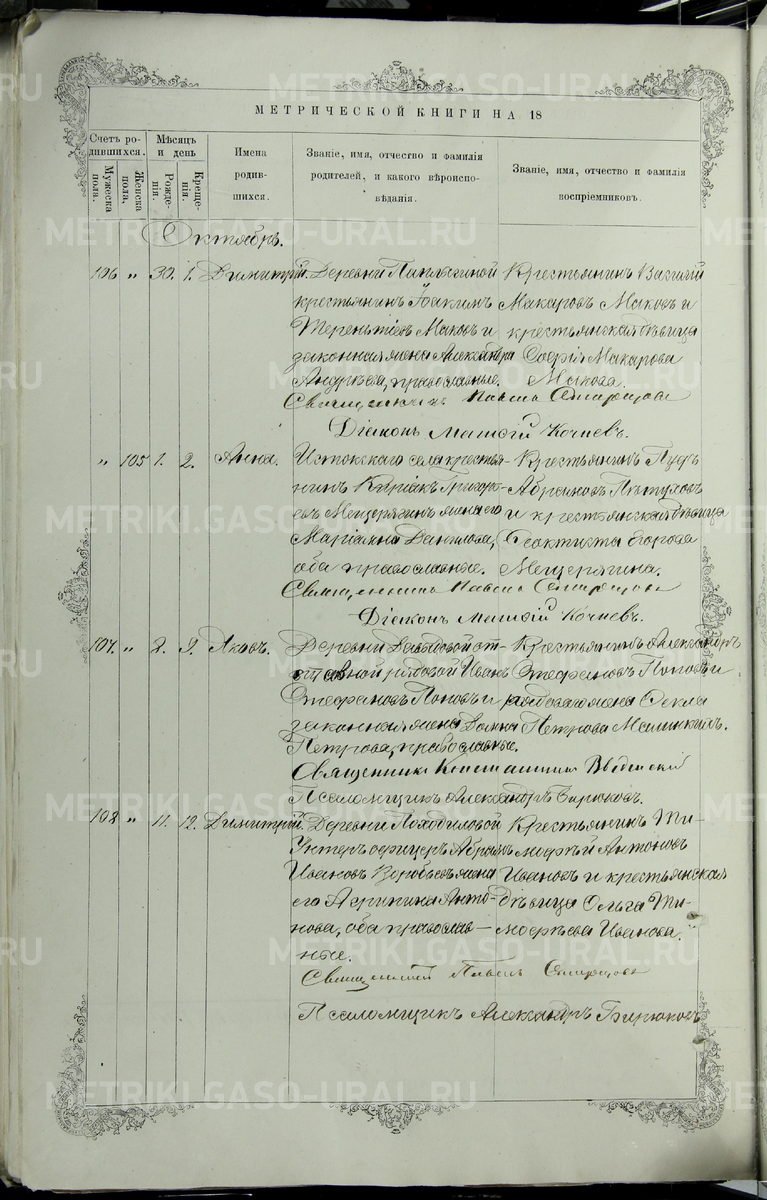 МЕТРИЧЕСКОЙ КНИГИ НА 18
Счетъ родившихся.
Мужеска пола.
Женска пола.
Мѣсяцъ и день
Рожденія.
Крещенія.
Имена родившихся.
Званіе, имя, отчество и фамилія родителей, и какого вѣроисповѣданія.
Званіе, имя, отчество и фамилія воспріемниковъ.
Октябрь.
106 " 30. 1. Димитрій.
Деревни
крестьянинъ Іоакимъ
Терентіевъ Маковъ и
законная жена Александра
Андреева, православные.
Крестьянинъ Василій
Макаровъ Маковъ и
крестьянская дѣвица
Софія Макарова
Макова.
Священникъ Павелъ
Діаконъ Матѳій Кочневъ.
" 105 1. 2. Анна.
Истокскаго села крестья-
нинъ Киріакъ Григорь-
евъ Мещерягинъ жена его
Маріамна Данилова,
оба православные.
Крестьянинъ Пудъ
Абрамовъ Пѣтуховъ
и крестьянская дѣвица
Ѳеоктиста Егорова
Мещерягина.
Священникъ Павелъ
Діаконъ Матѳій Кочневъ.
107. " 2. 9. Яковъ.
Деревни Давыдовой от-
ставной рядовой Иванъ
Стефановъ Поповъ и
законная жена Домна
Петрова, православные.
Крестьянинъ Александръ
Стефановъ Поповъ и
рядоваго жена Ѳекла
Петрова Малинкинъ.
Священникъ Константинъ Введенскій
Псаломщикъ Александръ Бирюковъ.
108 " 11. 12. Димитрій.
Деревни Походиловой
Унтеръ офицеръ Абрамъ
Ивановъ Воробьевъ жена
его Агрипина Анто-
нова, оба православ-
ные.
Крестьянинъ Ти-
моѳѣй Антоновъ
Ивановъ и крестьянская
дѣвица Ольга Ти-
моѳѣева Иванова.
Священникъ Павелъ
Псаломщикъ Александръ Бирюковъ
METRIKI.GASO-URAL.RU